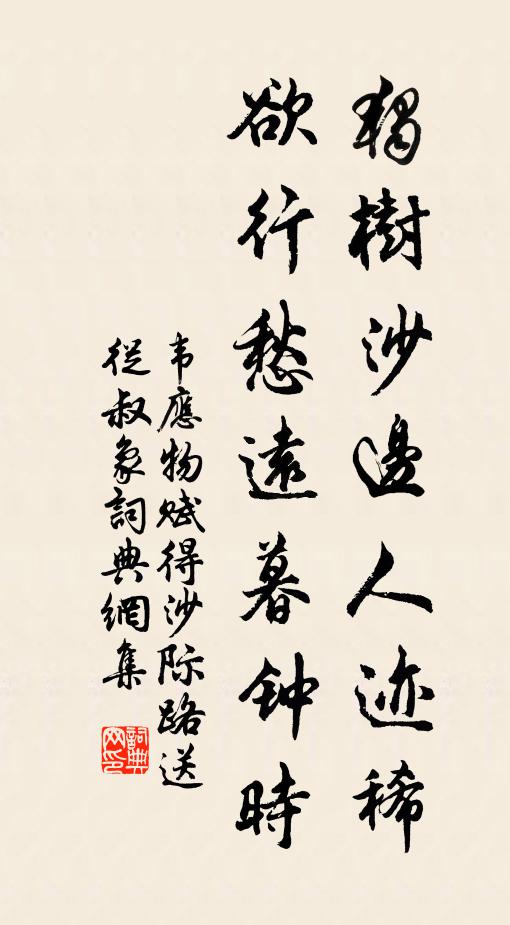 獨樹沙邊人迹稀
欲行愁遠暮钟時
韦應物赋得沙际路送
從叔象詞典網集
詞典
网印